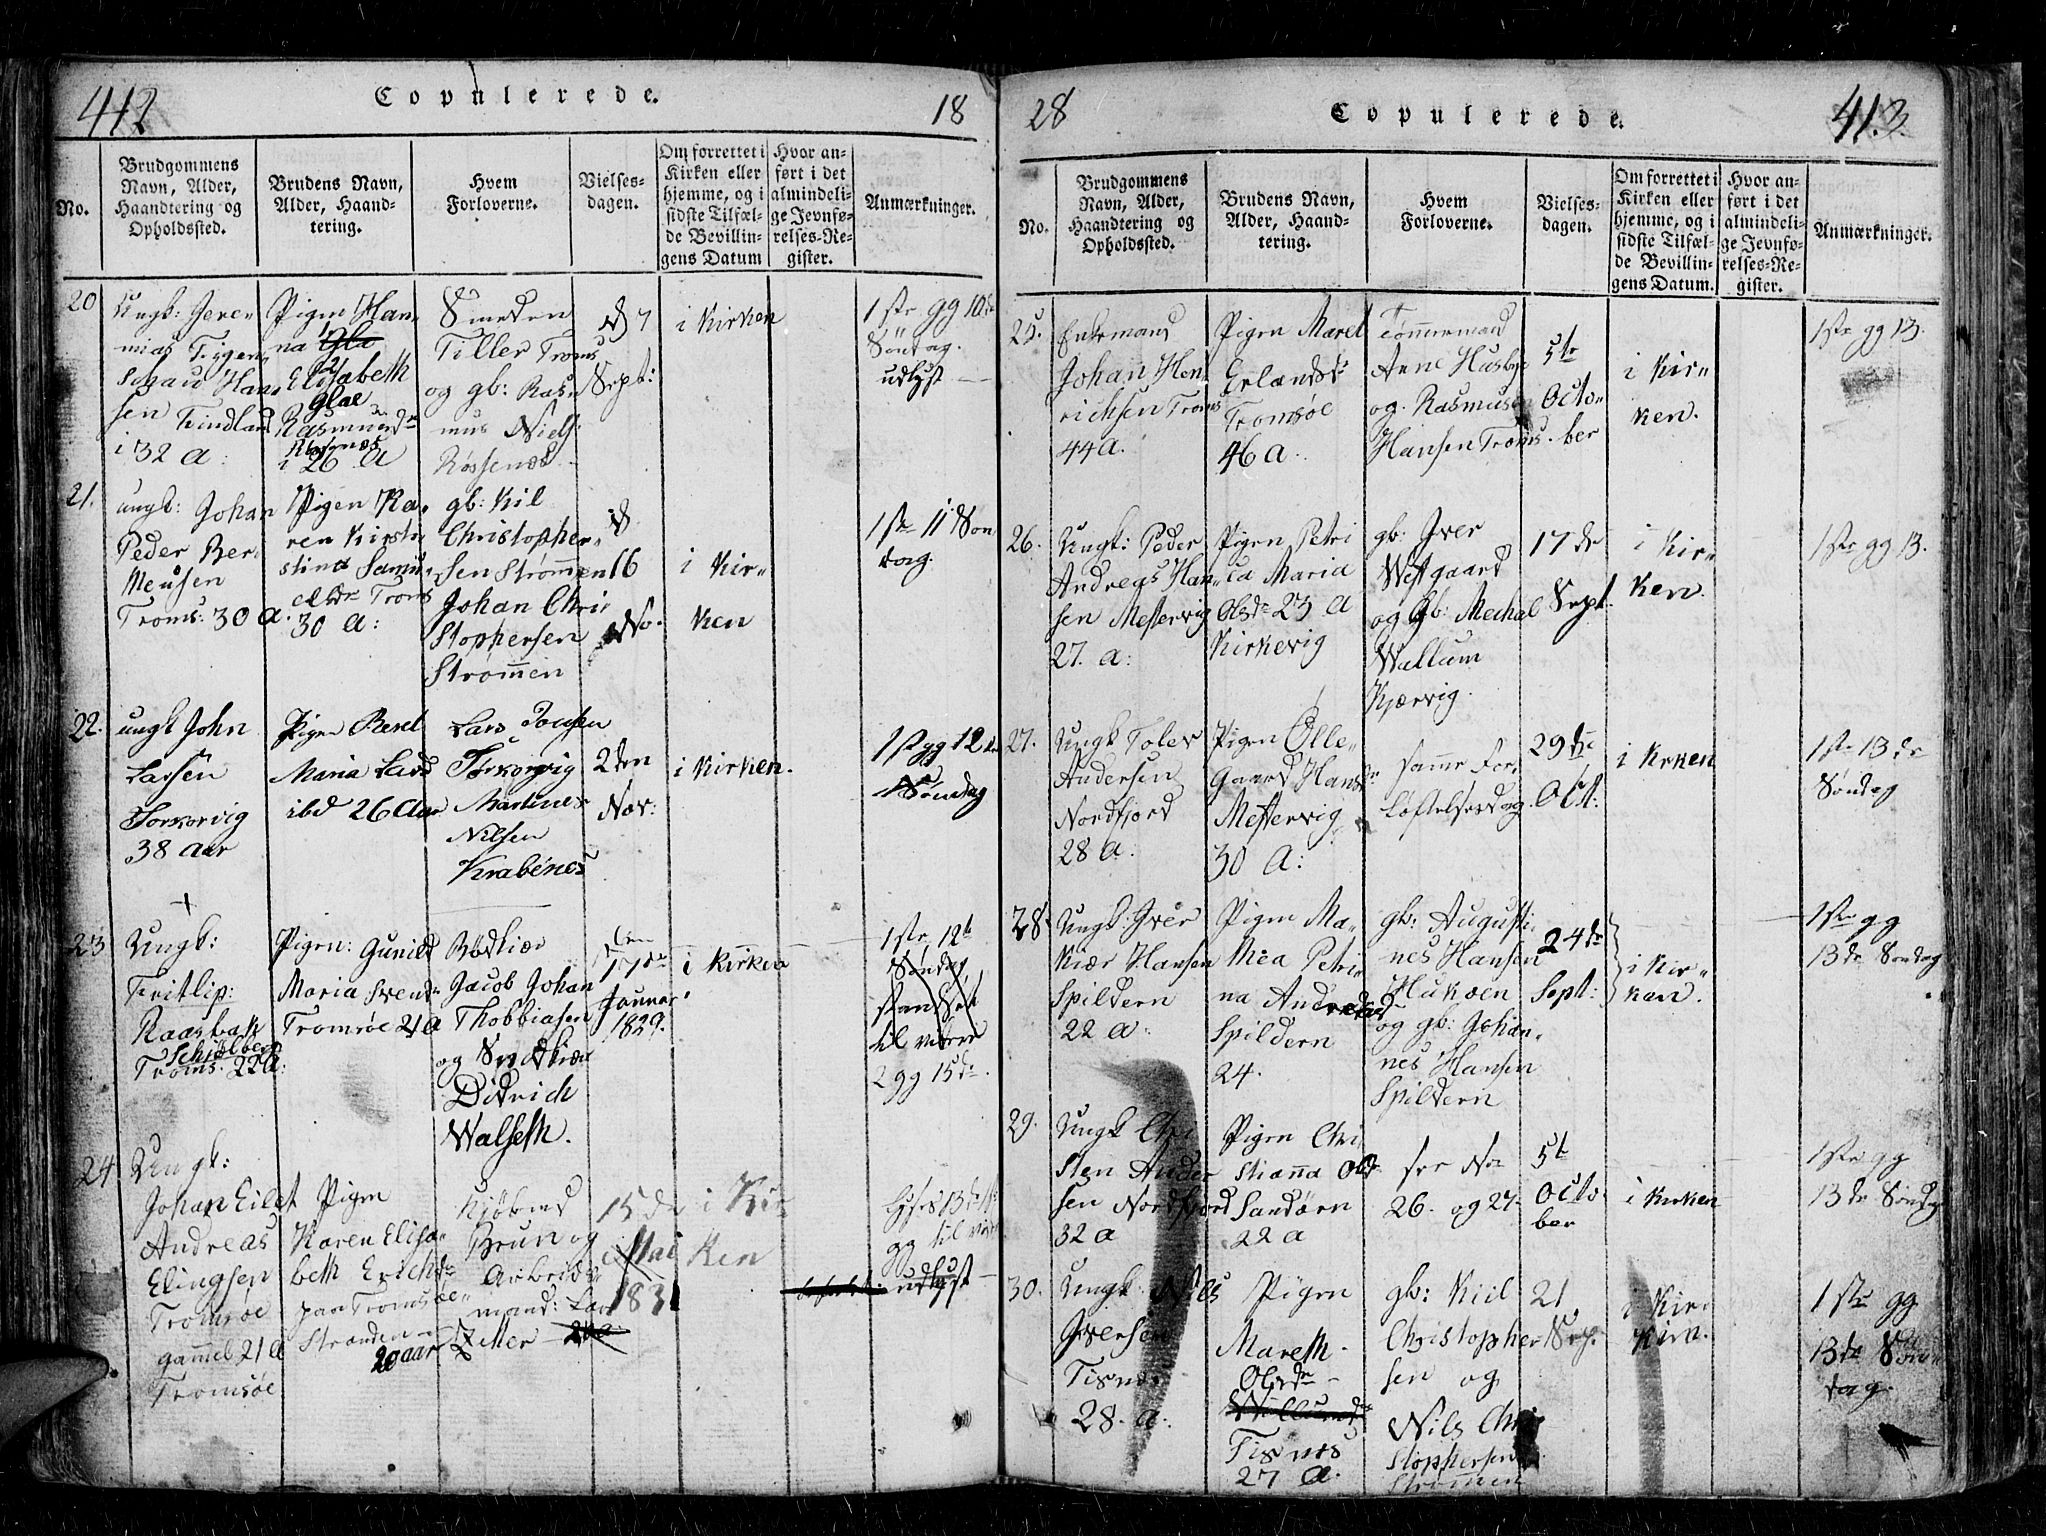 412
Copulerede.
18
No.
Brudgommens
Navn, Alder,
Haandtering og
Opholdssted.
Brudens Navn,
Alder, Haand-
tering.
Hvem
Forloverne.
Vielses-
dagen.
Om forrettet i
Kirken eller
hjemme, og i
sidste Tilfæl-
de Bevillin-
gens Datum
Hvor an-
ført i det
almindeli-
ge Jevnfø-
relses-Re-
gister.
Anmærkninger.
20
Ungk: Jere-
mias
Schau Han-
sen Tindland
i 32 A:
Pigen Han-
na Gla
Elisabeth
Glae
Rasmusdr
i 26 A
Smeden
Tiller Troms
og gb: Rasmus
Niels
Røssenæs
d 7
Sept:
i Kirken
1ste gg 10de
Søntag.
udlyst
21.
ungk: Johan
Peder Ber
Meusen
Troms: 30 A.
Pigen Ka-
ren Kirsti-
stina Samu-
elsdr Troms
30 A:
gb: Kil
Christopher-
sen Strømmen
Johan Chri
stophersen
Strømmen
d.
16
No.
i Kir-
ken
1ste 11 Søn
dag.
22.
ungk John
Larsen
Torkorvig
38 Aar
Pigen Berel
Maria Lars
ibd 26 Aar
Lars Jonsen
Torkorvig
Martines
Nilsen
Krabenes
2den
Nov:
i Kirken.
1st gg 12 de
Søndag
23
Ungk:
Fritlip:
Raasbak
Schjølberg
Troms. 22 A:
Pigen: Gunild
Maria Svends
Tromsøe 21 A
Bødkiær
Jacob Johan
Thobbiasen
og Snedkiær
Didrich
Walseth.
den
17de
Januar
1829.
i Kirken
1ste 12te
Søndag
standset
til videre
2 gg 15de.
24
Ungk:
Johan Eilet
Andreas
Elingsen
Tromsøe
gammel 21 A
Tromsøe
Pigen
Karen Elisa-
beth Erichdr
paa Tromsøe
Stranden
20 aar
Kjøbmd
Brun og
Arbeids-
mand: Lars
Zetter
15de
Mai
1831
i Kir
ken
lyses 13de
gg til
udlyst

28
Copulerede.
413.
No.
Brudgommens
Navn, Alder,
Haandtering og
Opholdssted.
Brudens Navn,
Alder, Haand-
tering.
Hvem
Forloverne.
Vielses-
dagen.
Om forrettet i
Kirken eller
hjemme, og i
sidste Tilfæl-
de Bevillin-
gens Datum.
Hvor an-
ført i det
almindeli-
ge Jevnfø-
relses-Re-
gister.
Anmærkninger.
25.
Enkemand
Johan Hen-
richsen Troms
44 A.
Pigen Maret
Erlandsdr
Tromsøe
46 A.
Tømmermand
Arne Husbye
og Rasmus
Hansen Troms.
5te
Octo-
ber
i Kir-
ken.
1ste gg 13.
26.
Ungk: Peder
Andreas Han-
sen Mestervig
27. A:
Pigen Petri
ca Maria
Olsdr 23 A
Kirkevig
gb: Iver
Westgaard
og Gb: Mechal
Wallum
Kjærvig.
17de
Sept.
i Kir-
ken.
1ste gg 13.
27.
Ungk Tolev
Andersen
Nordfjord
28 A.
Pigen Olle-
gaard Hansdr
Mestervig
30 A:
samme For-
løftelsesdag.
29de
Oct:
i Kirken
1ste 13de
Søndag
28.
Ungk: Iver
Kiær Hansen
Spildern
22 A.
Pigen Ma-
thea Petri-
na Andreas
Spildern
24.
gb: Augusti-
nes Hansen
Hukøen
og gb: Johan-
nes Hansen
Spildern
24de
Sept:
i Kir-
ken.
1ste gg
13de Søndag
29.
Ungk Chri
sten Ander
sen Nordfjord
32 A
Pigen Chri
stianna Olsdr
Sandørn
22 A
see No
26. og 27.
5te
Octo
ber
i Kirken
1ste gg
13de Søndag
30.
Ungk Nils
Iversen
Tisnes
28. A.
Pigen
Mareth
Olsdr
Tisnes
27 A.
gb: Kiil
Christopher
sen og
Nils Chri
stophersen
Strømmen
21
Sep.
i Kir
ken.
1ste gg
13de Søn-
dag.